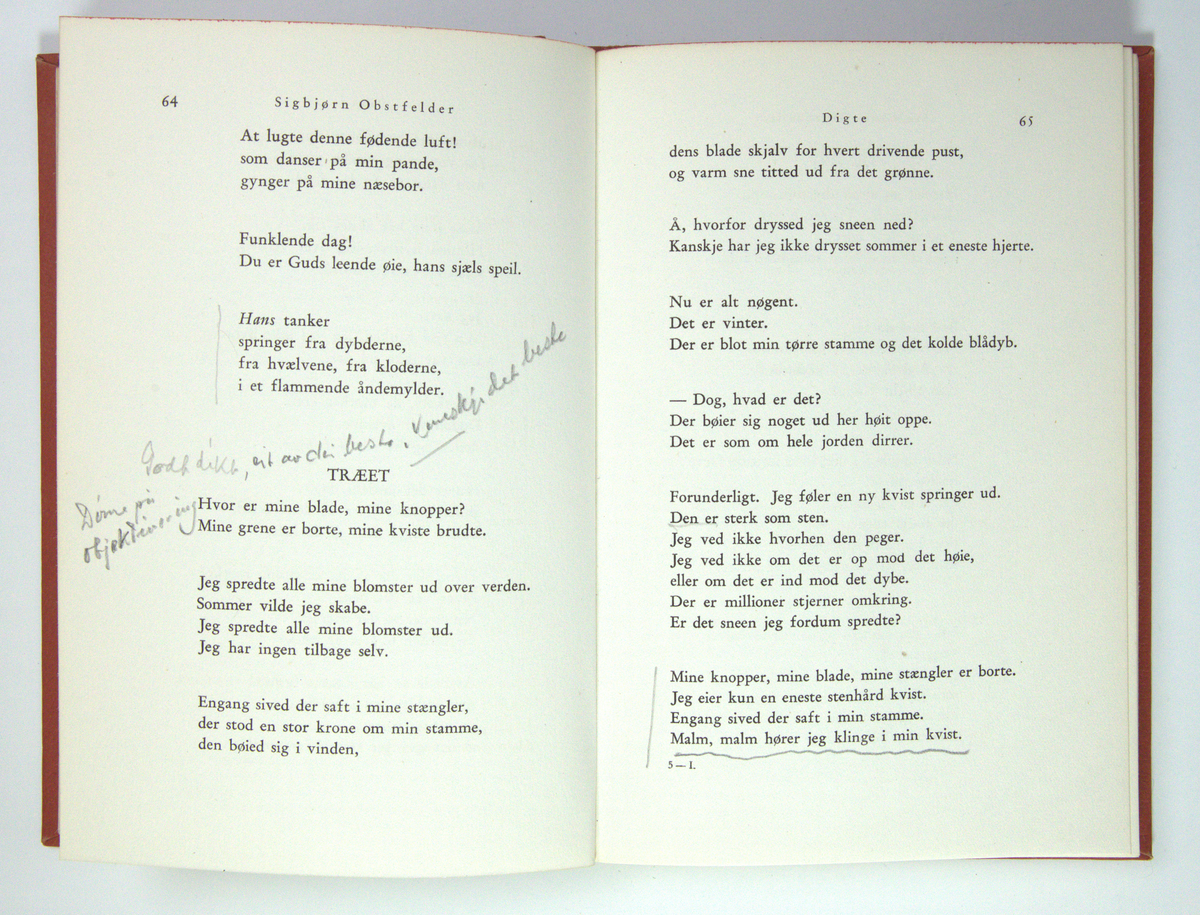 64 Sigbjørn Obstfelder
At lugte denne fødende luft!
som danser på min pande,
gynger på mine næsebor.
Funklende dag!
Du er Guds leende øie, hans sjæls speil.
Hans tanker
springer fra dybderne,
fra hvælvene, fra kloderne,
i et flammende åndemylder.
Godt dikt, eit av dei beste, kanskje det beste
TRÆET
Døme på
objektivering
Hvor er mine blade, mine knopper?
Mine grene er borte, mine kviste brudte.
Jeg spredte alle mine blomster ud over verden.
Sommer vilde jeg skabe.
Jeg spredte alle mine blomster ud.
Jeg har ingen tilbage selv.
Engang sived der saft i mine stængler,
der stod en stor krone om min stamme,
den bøied sig i vinden,
Digte 65
dens blade skjalv for hvert drivende pust,
og varm sne titted ud fra det grønne.
Å, hvorfor dryssed jeg sneen ned?
Kanskje har jeg ikke drysset sommer i et eneste hjerte.
Nu er alt nøgent.
Det er vinter.
Der er blot min tørre stamme og det kolde blådyb.
— Dog, hvad er det?
Der bøier sig noget ud her høit oppe.
Det er som om hele jorden dirrer.
Forunderligt. Jeg føler en ny kvist springer ud.
Den er sterk som sten.
Jeg ved ikke hvorhen den peger.
Jeg ved ikke om det er op mod det høie,
eller om det er ind mod det dybe.
Der er millioner stjerner omkring.
Er det sneen jeg fordum spredte?
Mine knopper, mine blade, mine stængler er borte.
Jeg eier kun en eneste stenhård kvist.
Engang sived der saft i min stamme.
Malm, malm hører jeg klinge i min kvist.
5 — I.